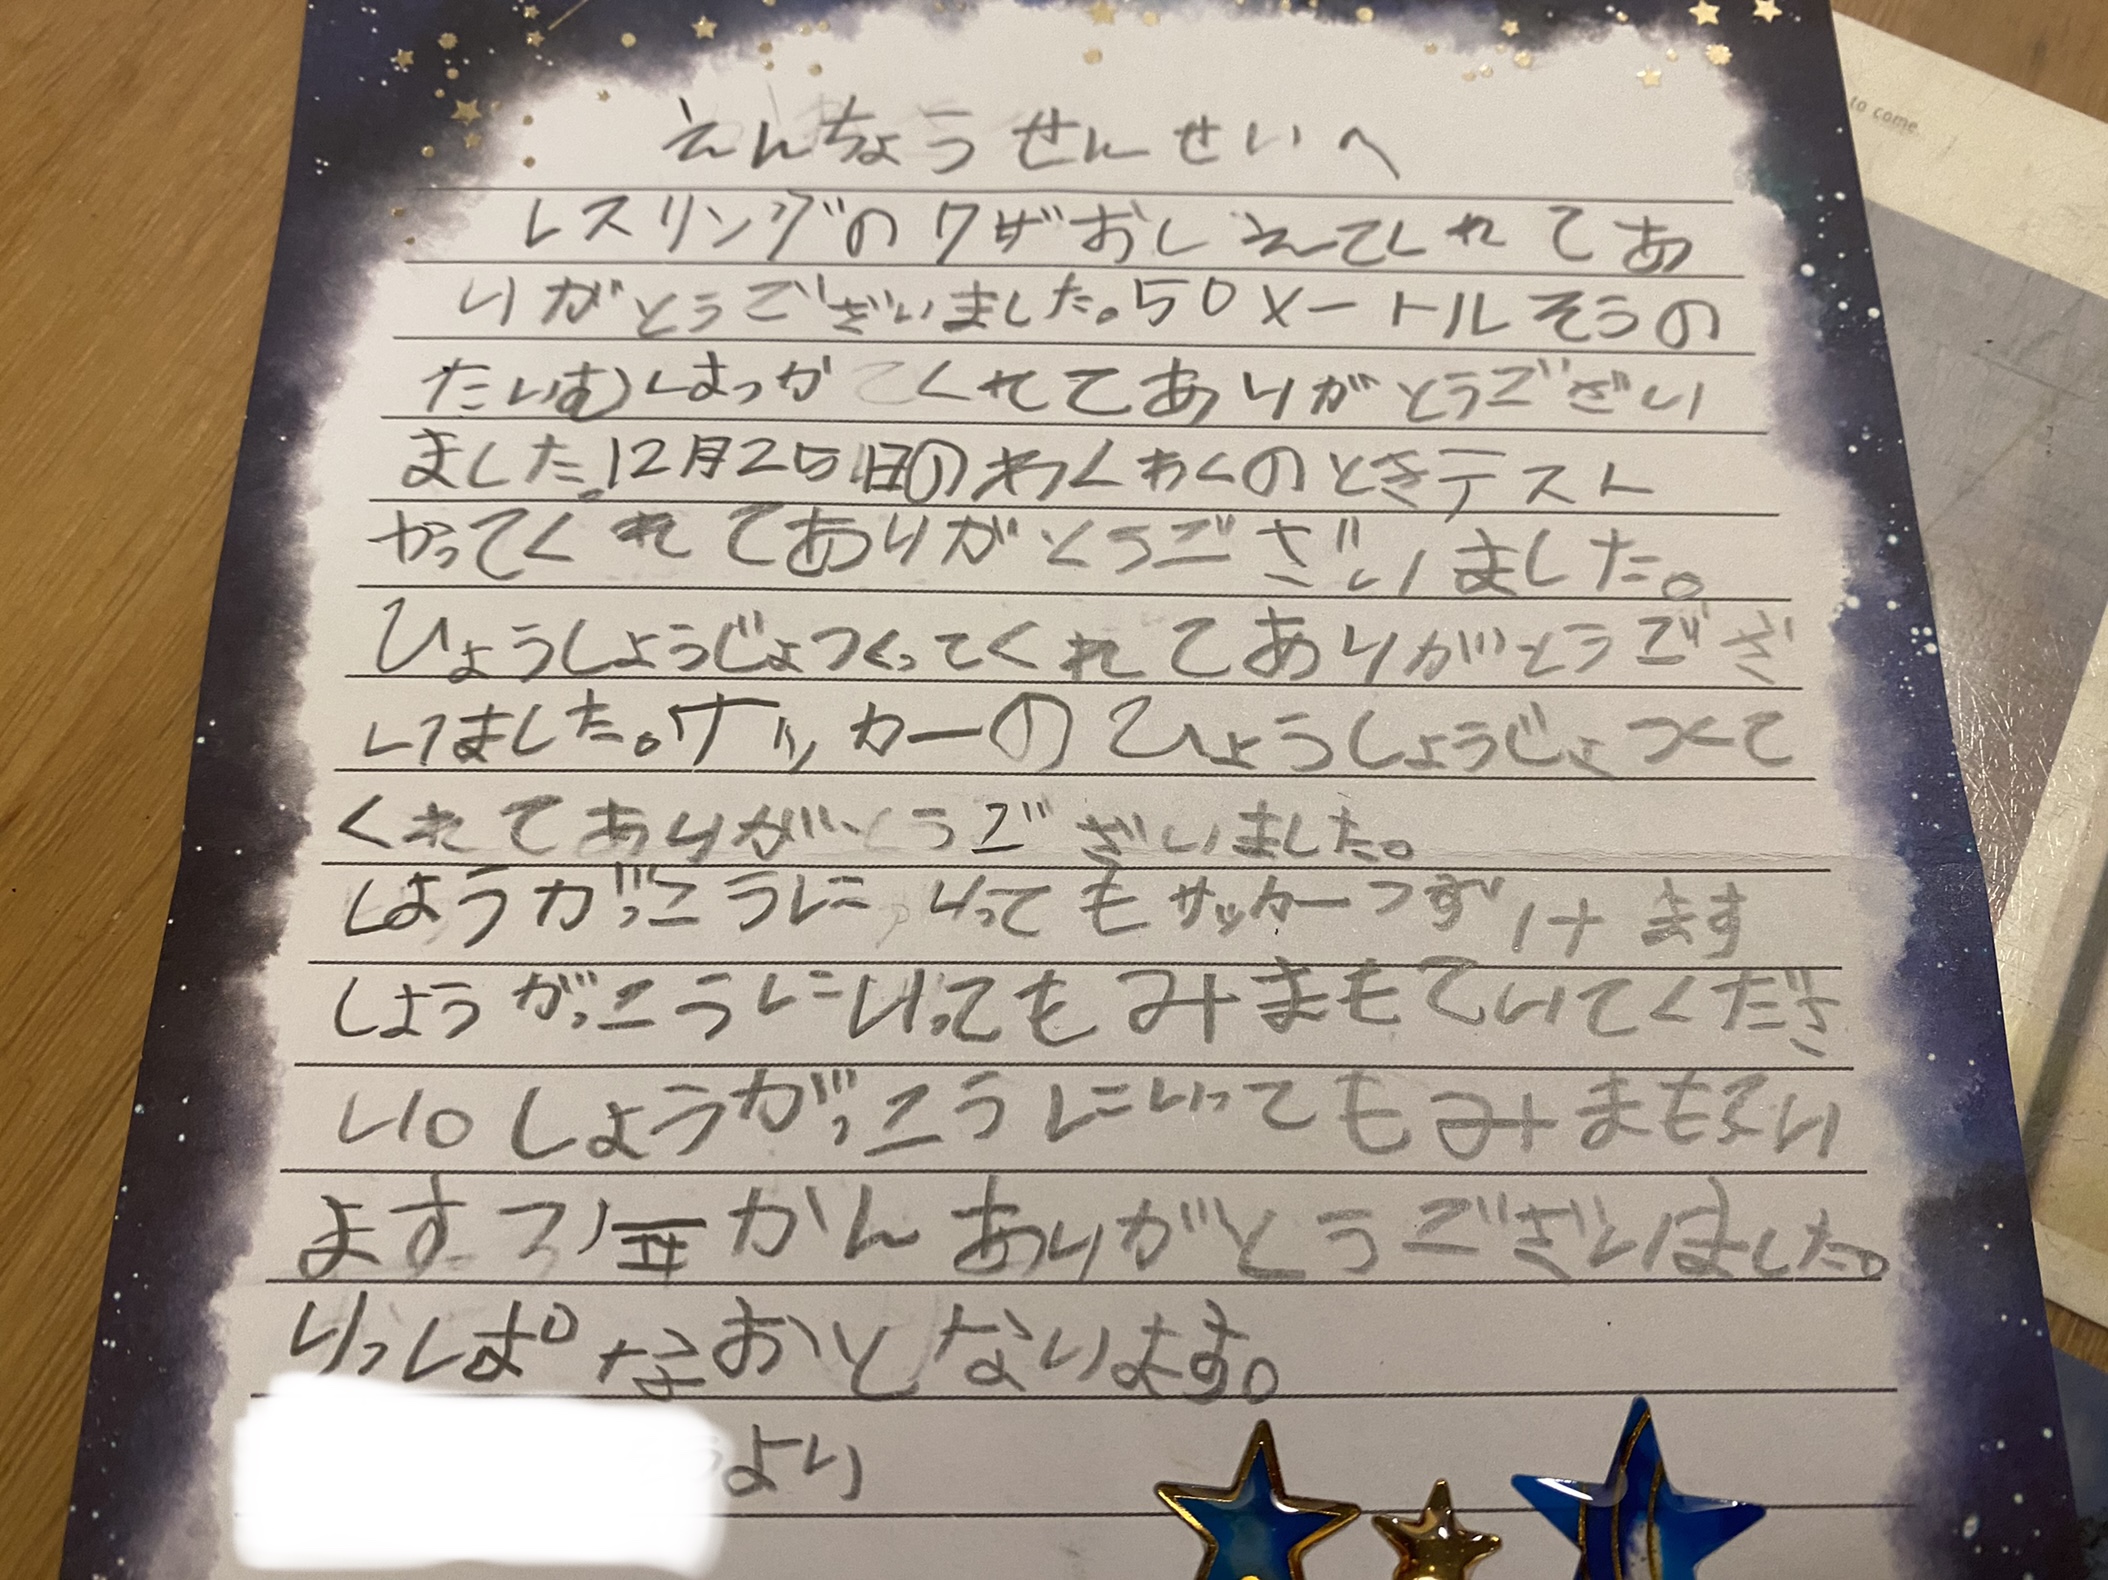 えんちょうせんせいへ
レスリングのワザおしえてくれてあ
りがとうございました。50メートルそうの
たいむはっかてくれてありがとうござい
ました。12月25日のわくわくのときテスト
やってくれてありがとうございました。
ひょうしょうじょつくってくれてありがとうござ
いました。サッカーのひょうしょうじょつくて
くれてありがとうございました。
しょうがっこうにいってもサッカーつずけます
しょうがっこうにいってもみまもていてくださ
い。しょうがっこうにいってもみまもてい
ます かんありがとうございました。
りっぱなおとなります。
より
to come